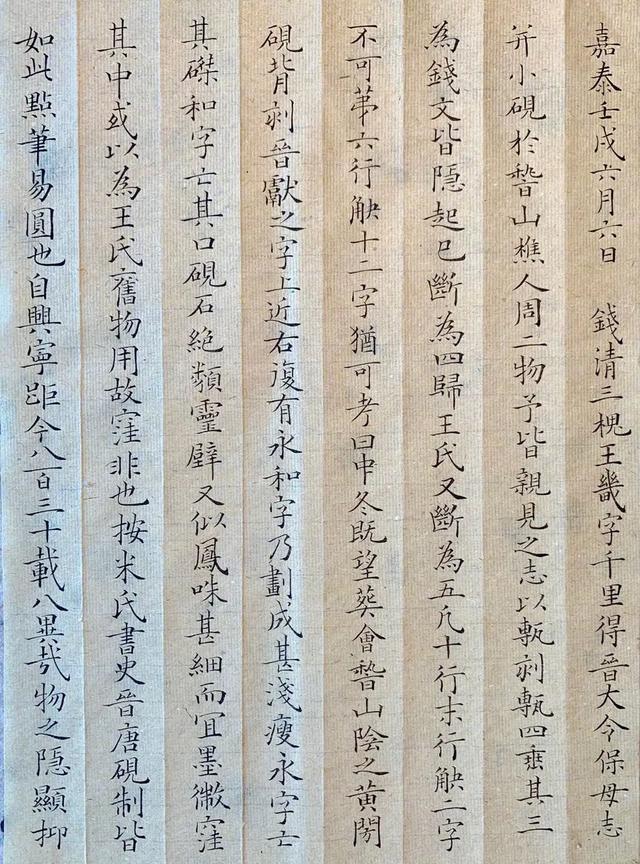 嘉泰壬戌六月六日　錢清三槐王畿字千里得晉大令保母志
并小硯於稽山樵人周二物予皆親見之志以甎刻甎四垂其三
為錢文皆隱起已斷為四歸王氏又斷為五凡十行末行缺二字
不可苐六行缺十二字猶可考曰中冬既望葬會稽山陰之黃閍
硯背刻晉獻之字上近右復有永和字乃劃成甚淺瘦永字亡
其磔和字亡其口硯石絕類靈壁又似鳳咮甚細而宜墨微窪
其中或以為王氏舊物用故窪非也按米氏書史晉唐硯制皆
如此點筆易圓也自興寧距今八百三十載八異哉物之隱顯抑